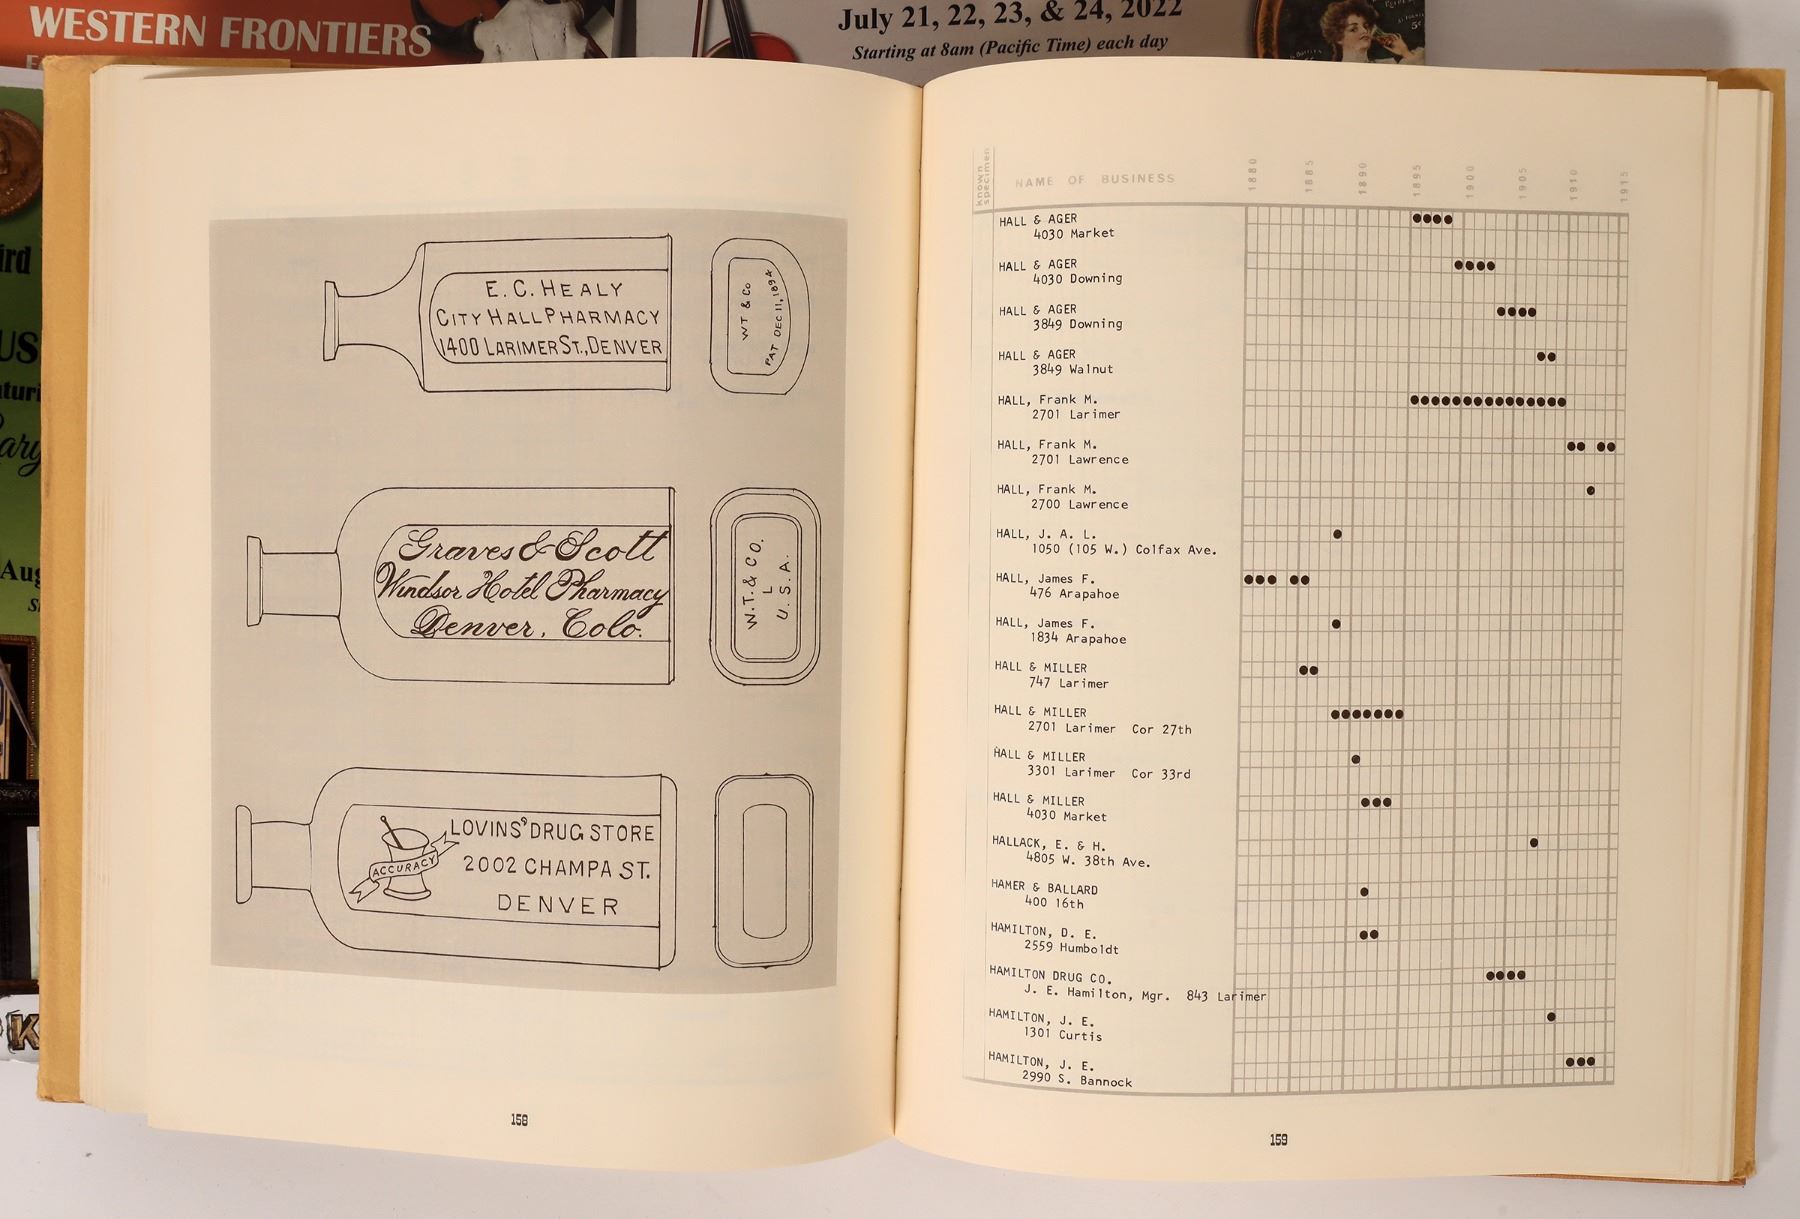 WESTERN FRONTIERS
July 21, 22, 23, & 24, 2022
Starting at 8am (Pacific Time) each day
E. C. HEALY
CITY HALL PHARMACY
1400 LARIMER ST., DENVER
WT & Co
PAT DEC 11, 1894
Graves & Scott
Windsor Hotel Pharmacy
Denver, Colo.
W.T. & CO.
L
U.S.A.
ACCURACY
LOVINS' DRUG STORE
2002 CHAMPA ST.
DENVER
158
known specimen
NAME OF BUSINESS
1880
1885
1890
1895
1900
1905
1910
1915
HALL & AGER
4030 Market
HALL & AGER
4030 Downing
HALL & AGER
3849 Downing
HALL & AGER
3849 Walnut
HALL, Frank M.
2701 Larimer
HALL, Frank M.
2701 Lawrence
HALL, Frank M.
2700 Lawrence
HALL, J. A. L.
1050 (105 W.) Colfax Ave.
HALL, James F.
476 Arapahoe
HALL, James F.
1834 Arapahoe
HALL & MILLER
747 Larimer
HALL & MILLER
2701 Larimer Cor 27th
HALL & MILLER
3301 Larimer Cor 33rd
HALL & MILLER
4030 Market
HALLACK, E. & H.
4805 W. 38th Ave.
HAMER & BALLARD
400 16th
HAMILTON, D. E.
2559 Humboldt
HAMILTON DRUG CO.
J. E. Hamilton, Mgr. 843 Larimer
HAMILTON, J. E.
1301 Curtis
HAMILTON, J. E.
2990 S. Bannock
159